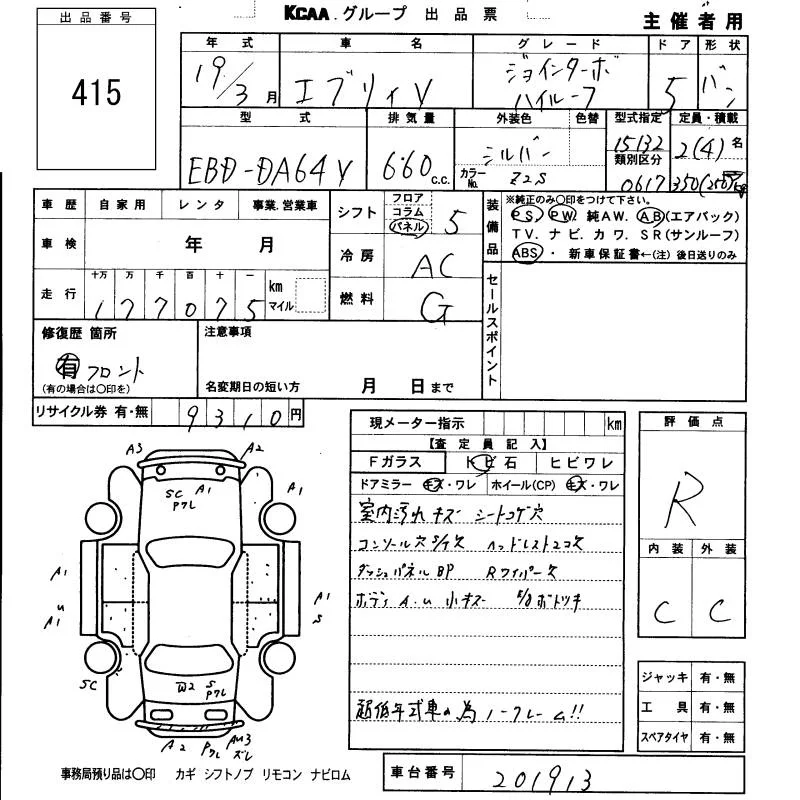 KCAA. グループ 出品票
主催者用
出品番号
415
年式 車名 グレード ドア 形状
19/3月 エブリィV ジョインターボ ハイルーフ 5 バン
型式 排気量 外装色 色替 型式指定 定員・積載
EBD-DA64V 660c.c. シルバー 15132 2(4)名
カラーNo. Z2S 類別区分 0617 350(250)kg
車歴 自家用 レンタ 事業.営業車
車検 年 月
走行 十万 万 千 百 十 一 km マイル
177075
シフト フロア コラム パネル 5
冷房 AC
燃料 G
装備品
※純正のみ〇印をつけて下さい。
PS. PW. 純AW. AB(エアバック)
TV. ナビ. カワ. SR(サンルーフ)
ABS・ 新車保証書←(注) 後日送りのみ
セールスポイント
修復歴 箇所
有 フロント
(有の場合は〇印を)
注意事項
名変期日の短い方 月 日まで
リサイクル券 有・無 9310円
現メーター指示 km
【査定員記入】
Fガラス トビ石 ヒビワレ
ドアミラー キズ・ワレ ホイール(CP) キズ・ワレ
室内汚れキズ シートコゲ穴
コンソール穴 欠 ヘッドレスト2コ欠
ダッシュパネルBP Rワイパー欠
ボディA.U小キズ
超低年式車の為ノークレーム!!
評価点
R
内装 外装
C C
ジャッキ 有・無
工具 有・無
スペアタイヤ 有・無
A3 A2
SC A1
ワレ
A1 A1
A1
U
A1
A1
S
SC
W2 S
ワレ
A2 ワレ AU3
ズレ
事務局預り品は〇印 カギ シフトノブ リモコン ナビロム
車台番号 201913